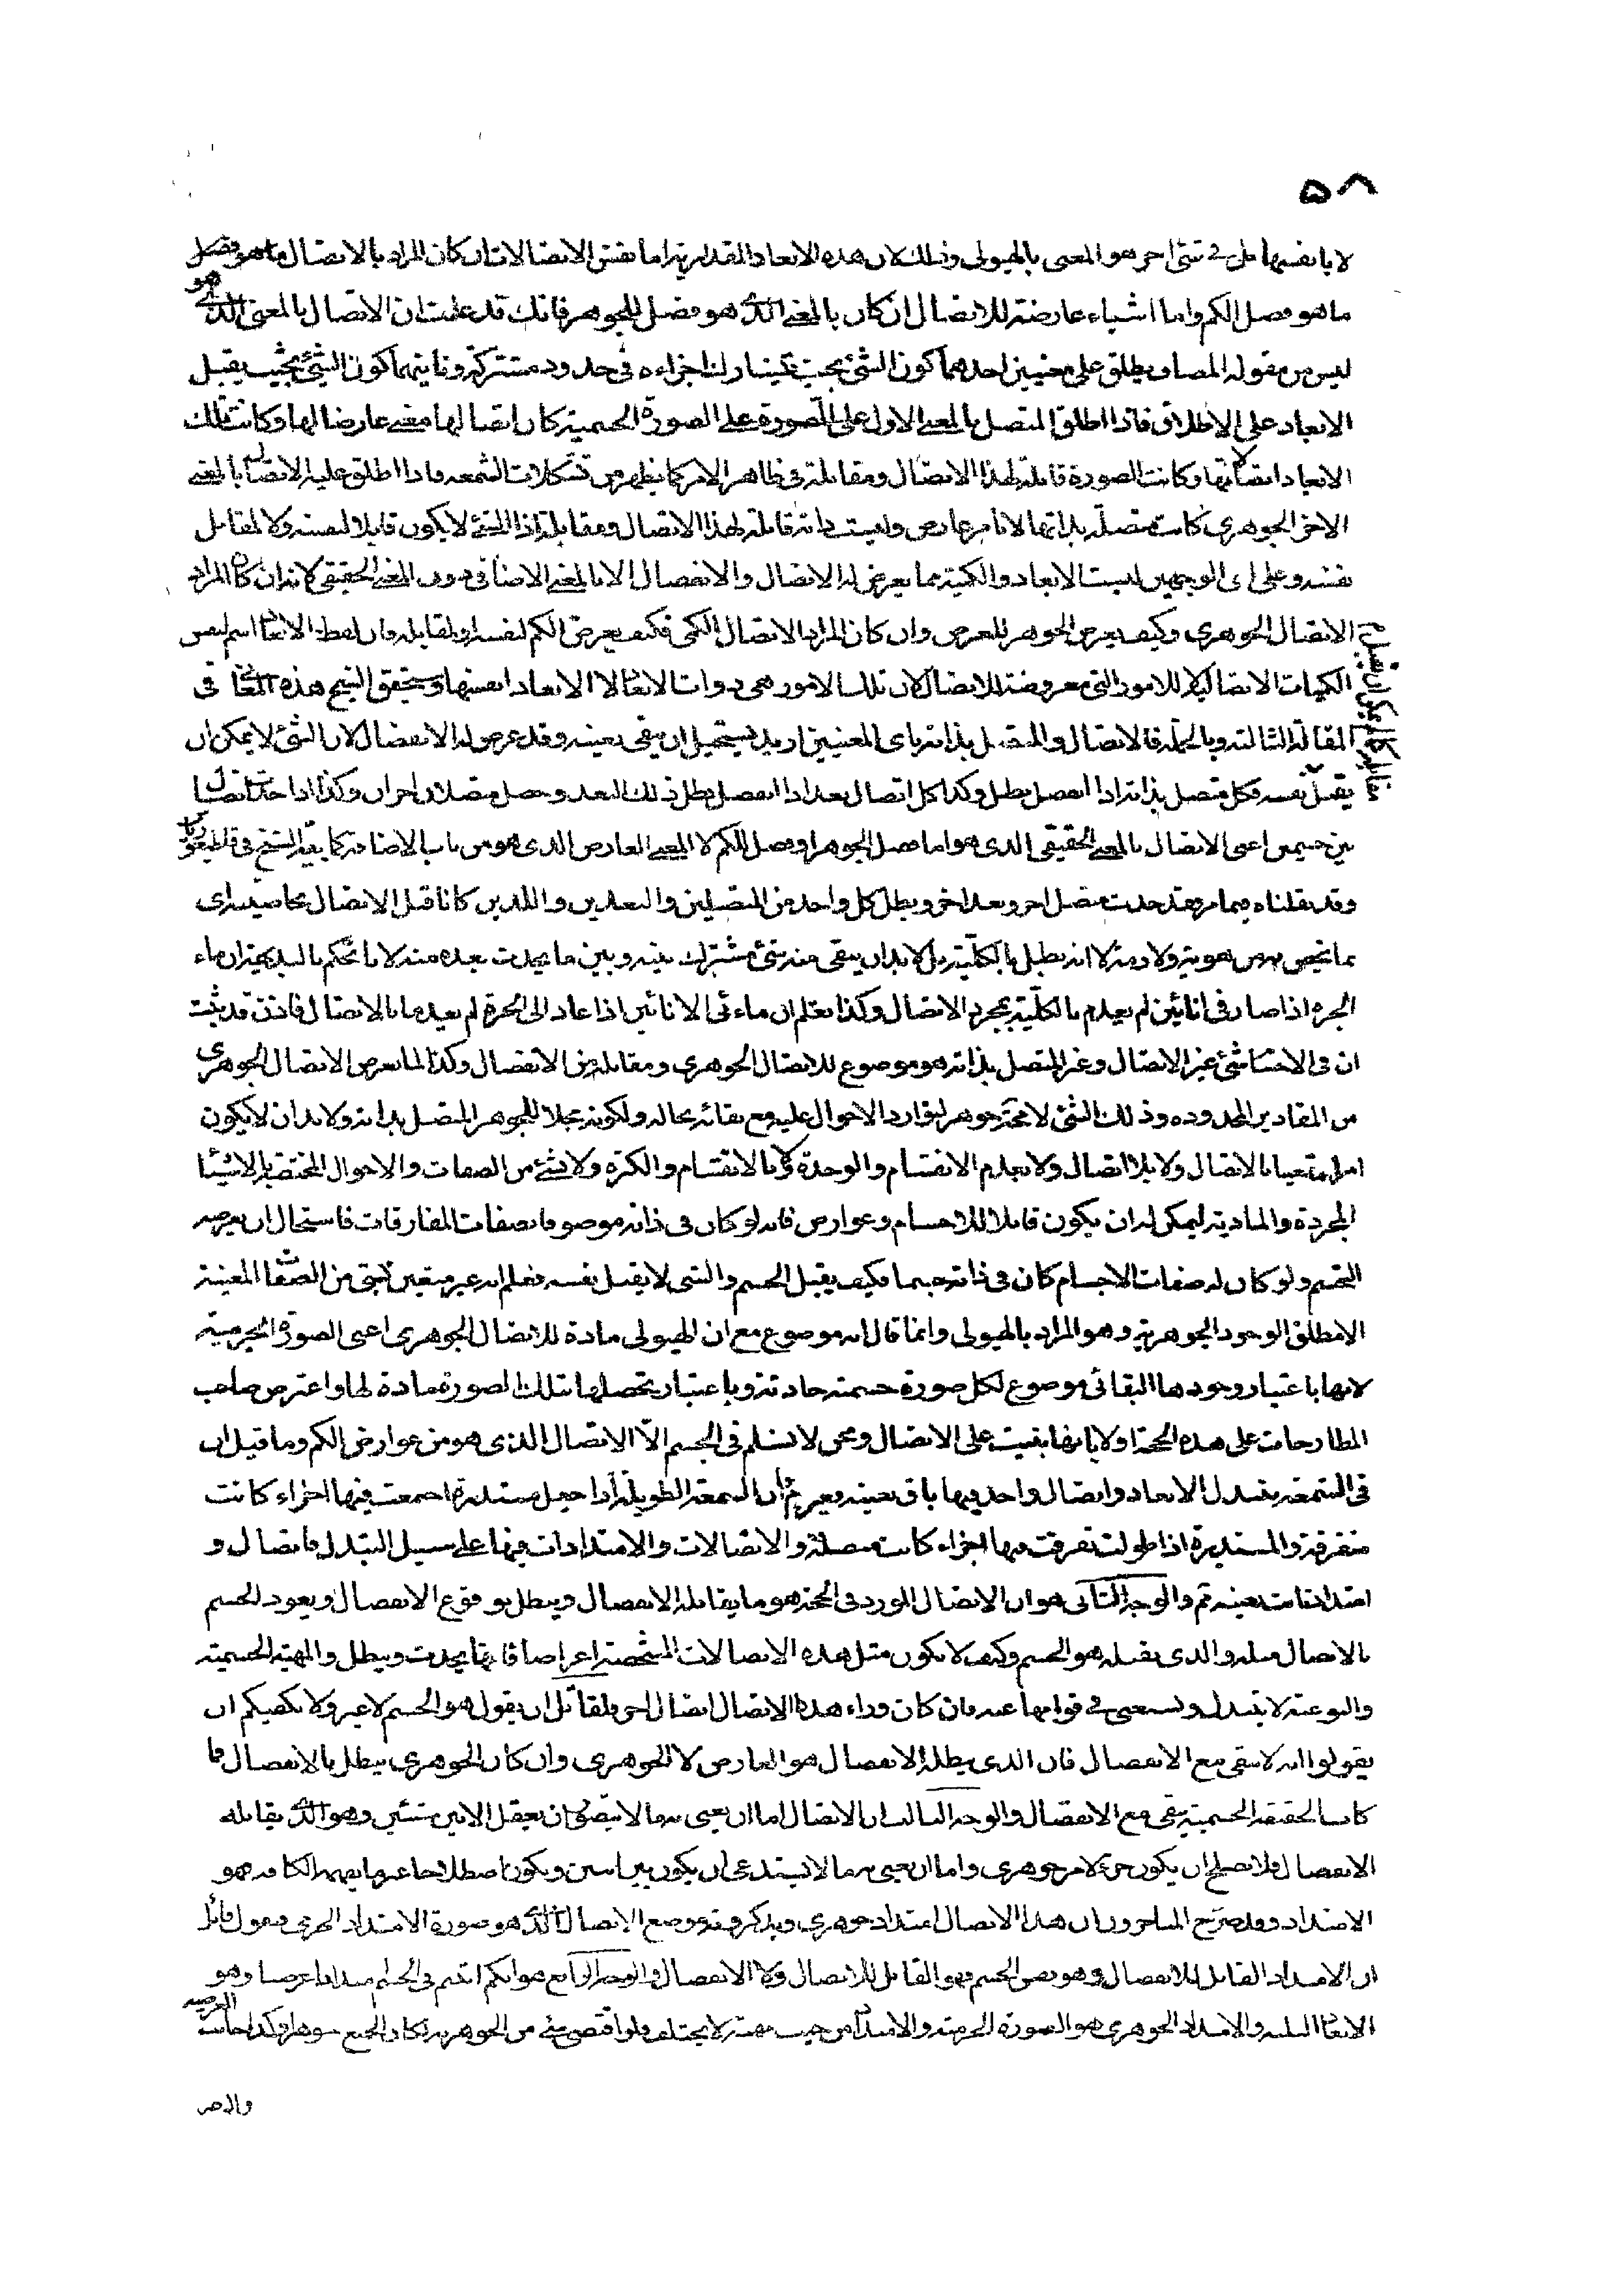 ٥٨
لا بانفسها بل فى شئ اخر هو المعنى بالهيولى وذلك لان هذه الابعاد المقدارية اما نفس الاتصالات ان كان المراد بالاتصال ما هو فصل
ما هو فصل الكم واما اشياء عارضة للاتصال ان كان بالمعنى الذى هو فصل للجوهر فانك قد علمت ان الاتصال بالمعنى الذى هو
ليس من مقولة المضاف يطلق على معنيين احدهما كون الشئ بحيث يتشارك اجزاءه فى حدود مشتركة وثانيهما كون الشئ بحيث يقبل
الابعاد على الاطلاق فاذا اطلق المتصل بالمعنى الاول على الصورة على الصورة الجسمية كان اتصالها معنى عارضا لها وكانت تلك
الابعاد اتصالاتها وكانت الصورة قابلة لهذا الاتصال ومقابله فى ظاهر الامر كما يظهر من تشكلات الشمعه واذا اطلق عليه الاتصال بالمعنى
الاخر الجوهرى كانت متصلة بذاتها لا بامر عارض وليست ذاته قابلة لهذا الاتصال ومقابله اذ الشئ لا يكون قابلا لنفسه ولا لمقابل
نفسه وعلى اى الوجهين ليست الابعاد والكمية مما يعرض له الاتصال والانفصال الا بالمعنى الاضافى دون المعنى الحقيقى لانه ان كان المراد
الاتصال الجوهرى وكيف يعرض الجوهر للعرض وان كان المراد الاتصال الكمى فكيف يعرض الكم لنفسه او لمقابله فان لفظ الاتصال اسم لنفس
الكميات الاتصالية لا للامور التى معروضة للاتصال لان تلك الامور هى ذوات الاتصال لا الابعاد انفسها وسيحقق الشيخ هذه المعانى فى
المقالة الثالثة وبالجملة فالاتصال والمتصل بذاته باى المعنيين اريد يستحيل ان يبقى بعينه وقد عرض له الانفصال لان الشئ لا يمكن ان
يقبل نفسه فكل متصل بذاته اذا انفصل بطل وكذا كل اتصال بعد اذا انفصل بطل ذلك البعد وحصل متصلان اخران وكذا اذا حدث اتصال
بين جسمين اعنى الاتصال بالمعنى الحقيقى الذى هو اما فصل الجوهر او فصل الكم لا المعنى العارض الذى هو من باب الاضافة كما بينه الشيخ فى قاطيغورياس
وقد نقلناه فيما مر فقد حدث متصل اخر وبعد اخر وبطل كل واحد من المتصلين والبعدين واللذين كانا قبل الاتصال بخاصيته اى
بما تخص به من هويته ولازمه لا انه بطل بالكلية بل لابد ان يبقى منه شئ مشترك بينه وبين ما يحدث بعده منه لانا نحكم بالبديهة ان ماء
الجره اذا صار فى انائين لم يعدم بالكلية بمجرد الاتصال وكذا نعلم ان مائى الانائين اذا عاد الى الجرة لم يعدما بالاتصال فاذن قد ثبت
ان فى الاجسام شئ غير الاتصال وغير المتصل بذاته هو موضوع للاتصال الجوهرى ومقابله من الانفصال وكذا لما يعرض الاتصال الجوهرى
من المقادير المحدوده وذلك الشئ لا محة جوهر لتوارد الاحوال عليه مع بقائه بحاله ولكونه محلا للجوهر المتصل بذاته ولابد ان لا يكون
امرا متعينا بالاتصال ولا بلا اتصال ولا بعدم الانقسام والوحدة ولا بالانقسام والكثرة ولا بشئ من الصفات والاحوال المختصة بالاشياء
المجردة والمادية ليمكن له ان يكون قابلا للاجسام وعوارض فانه لو كان فى ذاته موصوفا بصفات المفارقات فاستحال ان يعرضه
التجسم ولو كان له صفات الاجسام كان فى ذاته جسما فكيف يقبل الجسم والشى لا يقبل نفسه فعلم انه غير متعين بشئ من الصفات المعينة
الا مطلق الوجود الجوهرية وهو المراد بالهيولى وانما قال انه موضوع مع ان الهيولى مادة للاتصال الجوهرى اعنى الصورة الجرمية
لانها باعتبار وجودها البقائى موضوع لكل صورة جسمية حادثة وباعتبار تحصلها بتلك الصورة مادة لها واعترض صاحب
المطارحات على هذه الحجة اولا بانها بنيت على الاتصال ونحن لا نسلم فى الجسم الّا الاتصال الذى هو من عوارض الكم وما قيل ان
فى الشمعة يتبدل الابعاد واتصال واحد فيها باق بعينه فغير ان الشمعة الطويلة اذا جعل مستديرة اجتمعت فيها اجزاء كانت
متفرقة والمستديرة اذا طولت تفرقت فيها اجزاء كانت متصلة والاتصالات والامتدادات فيها على سبيل التبدل فاتصال و
امتداد ثابت بعينه ثم والوجه الثانى هو ان الاتصال المورد فى الحجة هو ما يقابله الانفصال ويبطل بوقوع الانفصال ويعود الجسم
بالاتصال مثله والذى يقبله هو الجسم وكيف لا يكون مثل هذه الاتصالات المشخصة اعراضا فانها يحدث ويبطل والمهية الجسمية
والنوعية لا يتبدل ويستغنى فى قوامها عنه فان كان وراء هذا الاتصال اتصال اخر فلقائل ان يقول هو الجسم لا غير ولا يكفيكم ان
يقولوا انه لا يبقى مع الانفصال فان الذى يبطله الانفصال هو العارض لا الجوهرى وان كان الجوهرى يبطل بالانفصال فما
كانت الحقيقة الجسمية يبقى مع الانفصال والوجه الثالث ان الاتصال اما ان يعنى به ما لا يتصور ان يعقل الا بين شيئين وهو الذى يقابله
الانفصال فلا يصلح ان يكون جزء لامر جوهرى واما ان يعنى به ما لا يستدعى ان يكون بين اثنين ويكون اصطلاحا غير ما يفهمه الكافة فهو
الامتداد وقد صرح المتاخرون ان هذا الاتصال امتداد جوهرى ويذكرونه موضع الاتصال الذى هو صورة الامتداد الجرمى ويقول قائل
ان الامتداد القابل للانفصال وهو نفس الجسم فهو القابل للاتصال والانفصال والوجه الرابع هو انكم اثبتم فى الجسم امتدادا عرضيا وهو
الابعاد الثلثة والامتداد الجوهرى هو الصورة الجرمية والامتداد من حيث مهيته لا يختلف فلو اقتضى شئ من الجوهرية لكان الجميع جوهرا وكذا جانب العرضية
والامر